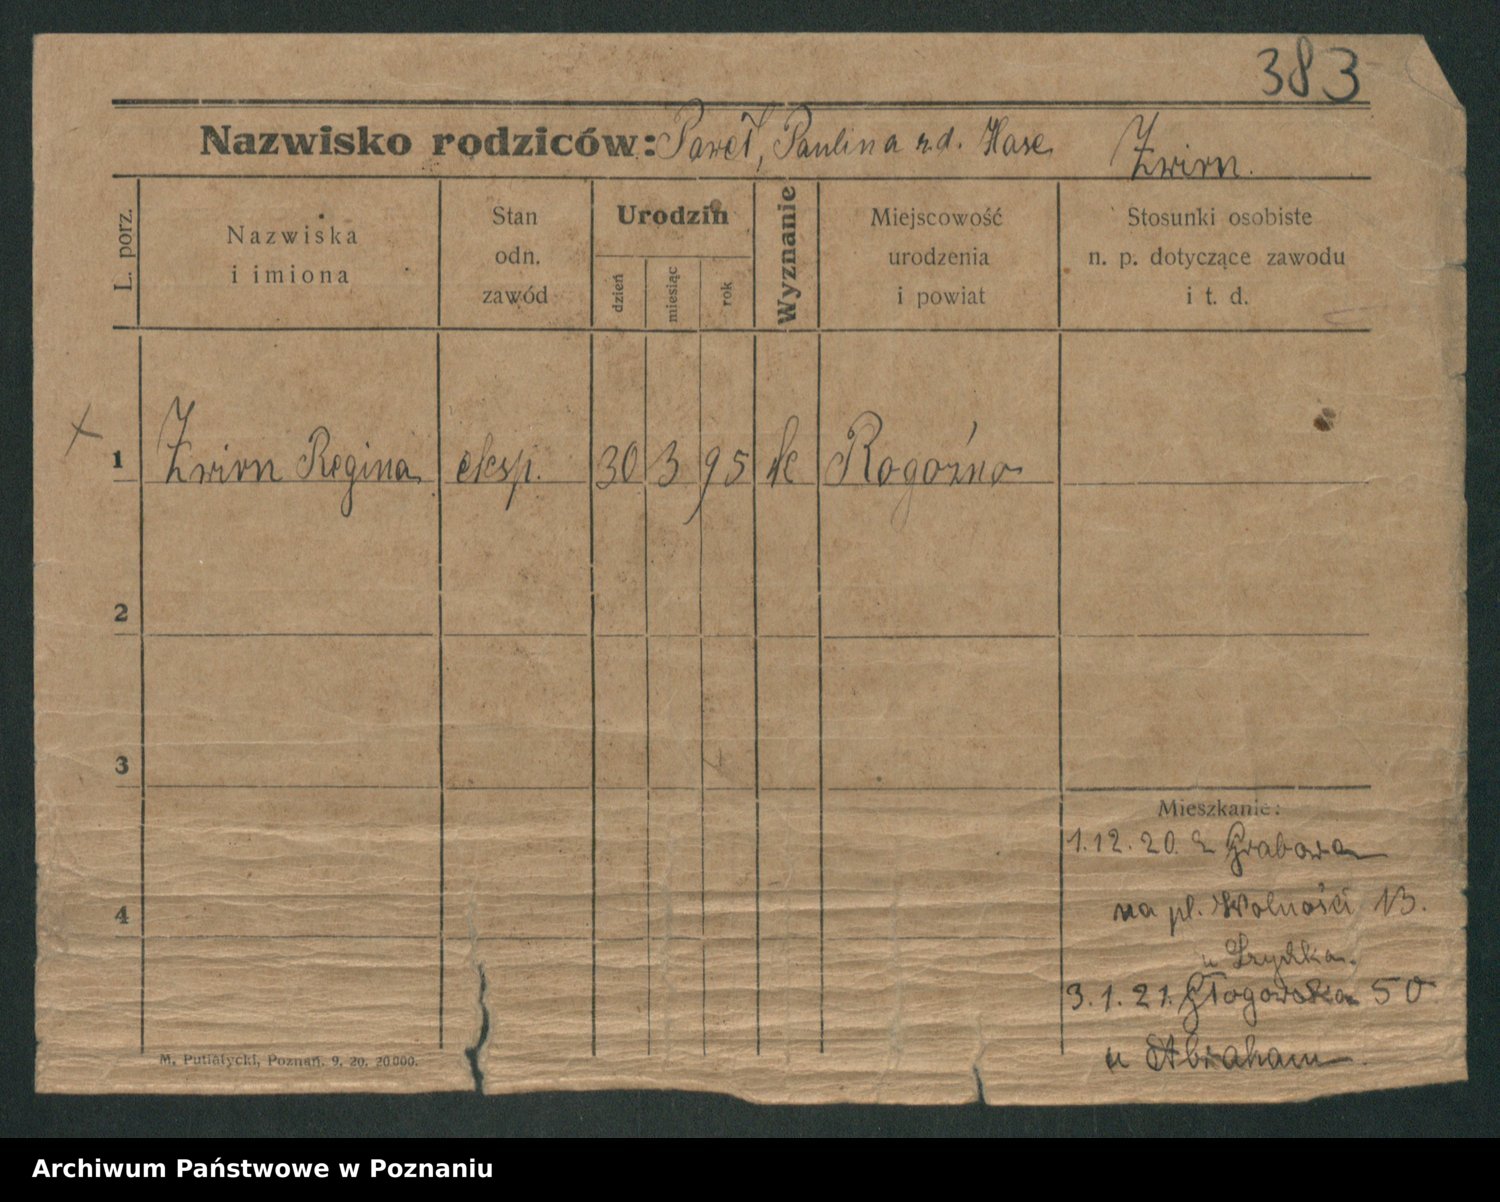 383
Nazwisko rodziców: Paweł, Paulina z d. Hase Żwirn.
L. porz.
Nazwiska
i imiona
Stan
odn.
zawód
Urodzin
dzień
miesiąc
rok
Wyznanie
Miejscowość
urodzenia
i powiat
Stosunki osobiste
n. p. dotyczące zawodu
i t. d.
1 Żwirn Regina eksp. 30 3 95 k Rogoźno
2
3
Mieszkanie:
1.12.20. z Grabowa
na pl. Wolności 13.
4
u
3.1.21. Głogowska 50
u Abraham.
M. Putiatycki, Poznań. 9. 20. 20000.
Archiwum Państwowe w Poznaniu